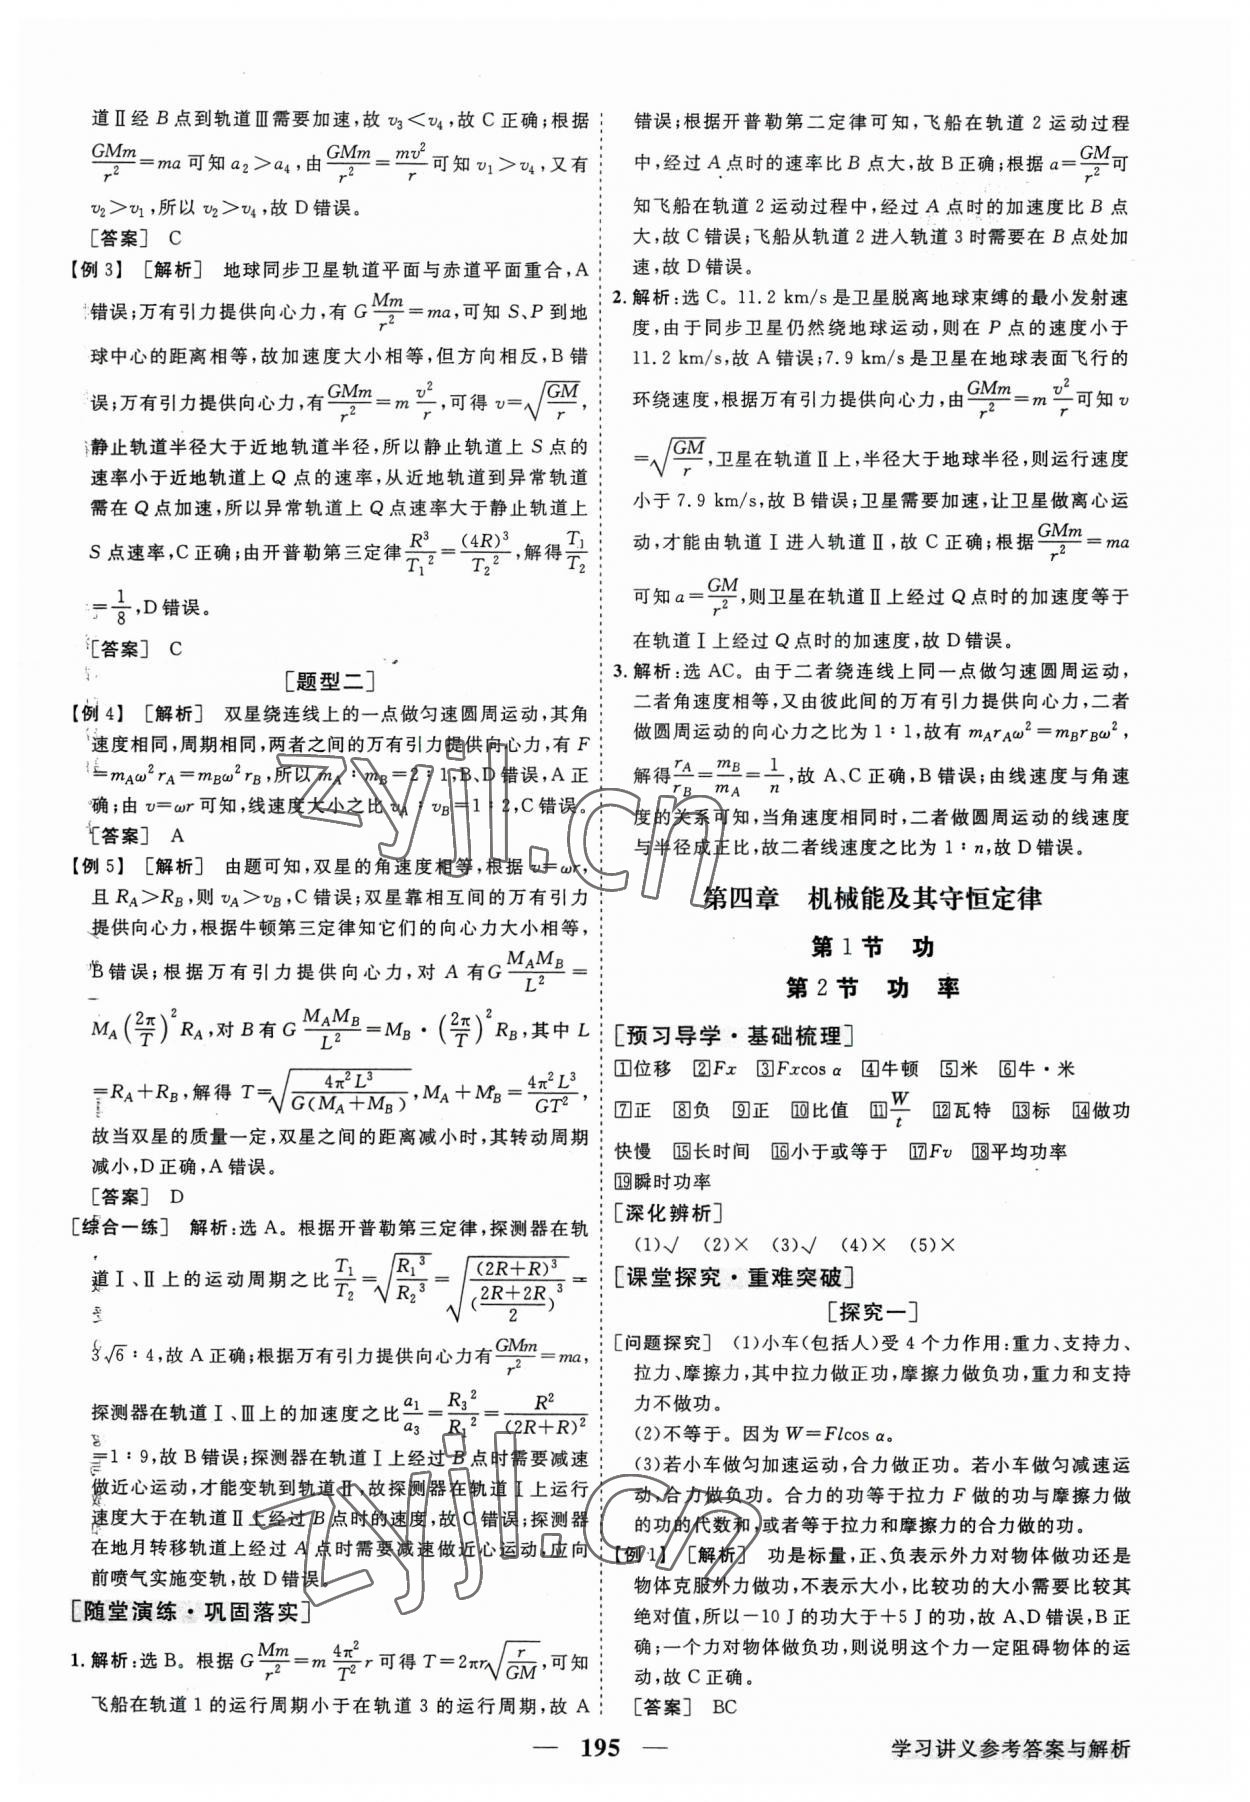 道Ⅱ经B点到轨道Ⅲ需要加速,故 v₃<v₄,故 C 正确;根据
GMm/r²=ma 可知 a₂>a₄,由GMm/r²=mv²/r可知 v₁>v₄,又有
v₂>v₁,所以 v₂>v₄,故 D 错误。
[答案] C
【例 3】 [解析] 地球同步卫星轨道平面与赤道平面重合,A
错误;万有引力提供向心力,有 G Mm/r²=ma,可知 S、P 到地
球中心的距离相等,故加速度大小相等,但方向相反,B 错
误;万有引力提供向心力,有GMm/r²=m v²/r,可得 v=√(GM/r),
静止轨道半径大于近地轨道半径,所以静止轨道上 S 点的
速率小于近地轨道上 Q 点的速率,从近地轨道到异常轨道
需在 Q 点加速,所以异常轨道上 Q点速率大于静止轨道上
S 点速率,C 正确;由开普勒第三定律R³/T₁²=(4R)³/T₂²,解得T₁/T₂
=1/8,D 错误。
[答案] C
[题型二]
【例 4】 [解析] 双星绕连线上的一点做匀速圆周运动,其角
速度相同,周期相同,两者之间的万有引力提供向心力,有 F
=m_Aω²r_A=m_Bω²r_B,所以 m_A∶m_B=2∶1,B、D 错误,A 正
确;由 v=ωr 可知,线速度大小之比 v_A∶v_B=1∶2,C 错误。
[答案] A
【例 5】 [解析] 由题可知,双星的角速度相等,根据 v=ωr,
且 R_A>R_B,则 v_A>v_B,C 错误;双星靠相互间的万有引力
提供向心力,根据牛顿第三定律知它们的向心力大小相等,
B 错误;根据万有引力提供向心力,对 A 有G M_AM_B/L²=
M_A(2π/T)²R_A,对 B 有 G M_AM_B/L²=M_B·(2π/T)²R_B,其中 L
=R_A+R_B,解得 T=√(4π²L³/G(M_A+M_B)),M_A+M_B=4π²L³/GT²,
故当双星的质量一定,双星之间的距离减小时,其转动周期
减小,D 正确,A 错误。
[答案] D
[综合一练] 解析:选 A。根据开普勒第三定律,探测器在轨
道Ⅰ、Ⅱ上的运动周期之比T₁/T₂=√(R₁³/R₂³)=√((2R+R)³/((2R+2R)/2)³)=
3√6∶4,故 A 正确;根据万有引力提供向心力有GMm/r²=ma,
探测器在轨道Ⅰ、Ⅲ上的加速度之比a₁/a₃=R₃²/R₁²=R²/(2R+R)²
=1∶9,故 B 错误;探测器在轨道Ⅰ上经过 B 点时需要减速
做近心运动,才能变轨到轨道Ⅱ,故探测器在轨道Ⅰ上运行
速度大于在轨道Ⅱ上经过 B 点时的速度,故 C 错误;探测器
在地月转移轨道上经过 A 点时需要减速做近心运动,应向
前喷气实施变轨,故 D 错误。
[随堂演练·巩固落实]
1. 解析:选 B。根据 G Mm/r²=m 4π²/T² r 可得 T=2πr√(r/GM),可知
飞船在轨道 1 的运行周期小于在轨道 3 的运行周期,故 A
错误;根据开普勒第二定律可知,飞船在轨道 2 运动过程
中,经过 A 点时的速率比 B 点大,故 B 正确;根据 a=GM/r²可
知飞船在轨道 2 运动过程中,经过 A 点时的加速度比 B 点
大,故 C 错误;飞船从轨道 2 进入轨道 3 时需要在 B 点处加
速,故 D 错误。
2. 解析:选 C。11.2 km/s 是卫星脱离地球束缚的最小发射速
度,由于同步卫星仍然绕地球运动,则在 P 点的速度小于
11.2 km/s,故 A 错误;7.9 km/s 是卫星在地球表面飞行的
环绕速度,根据万有引力提供向心力,由GMm/r²=m v²/r可知 v
=√(GM/r),卫星在轨道Ⅱ上,半径大于地球半径,则运行速度
小于 7.9 km/s,故 B 错误;卫星需要加速,让卫星做离心运
动,才能由轨道Ⅰ进入轨道Ⅱ,故 C 正确;根据GMm/r²=ma
可知 a=GM/r²,则卫星在轨道Ⅱ上经过 Q 点时的加速度等于
在轨道Ⅰ上经过 Q 点时的加速度,故 D 错误。
3. 解析:选 AC。由于二者绕连线上同一点做匀速圆周运动,
二者角速度相等,又由彼此间的万有引力提供向心力,二者
做圆周运动的向心力之比为 1∶1,故有 m_Ar_Aω²=m_Br_Bω²,
解得r_A/r_B=m_B/m_A=1/n,故 A、C 正确,B 错误;由线速度与角速
度的关系可知,当角速度相同时,二者做圆周运动的线速度
与半径成正比,故二者线速度之比为 1∶n,故 D 错误。
第四章 机械能及其守恒定律
第 1 节 功
第 2 节 功 率
[预习导学·基础梳理]
1位移 2Fx 3Fxcos α 4牛顿 5米 6牛·米
7正 8负 9正 10比值 11W/t 12瓦特 13标 14做功
快慢 15长时间 16小于或等于 17Fv 18平均功率
19瞬时功率
[深化辨析]
(1)√ (2)× (3)√ (4)× (5)×
[课堂探究·重难突破]
[探究一]
[问题探究] (1)小车(包括人)受 4 个力作用:重力、支持力、
拉力、摩擦力,其中拉力做正功,摩擦力做负功,重力和支持
力不做功。
(2)不等于。因为 W=Flcos α。
(3)若小车做匀加速运动,合力做正功。若小车做匀减速运
动,合力做负功。合力的功等于拉力 F 做的功与摩擦力做
的功的代数和,或者等于拉力和摩擦力的合力做的功。
【例 1】 [解析] 功是标量,正、负表示外力对物体做功还是
物体克服外力做功,不表示大小,比较功的大小需要比较其
绝对值,所以-10 J 的功大于+5 J 的功,故 A、D 错误,B 正
确;一个力对物体做负功,则说明这个力一定阻碍物体的运
动,故 C 正确。
[答案] BC
— 195 —
学习讲义参考答案与解析
zyjl.cn
zyjl.cn